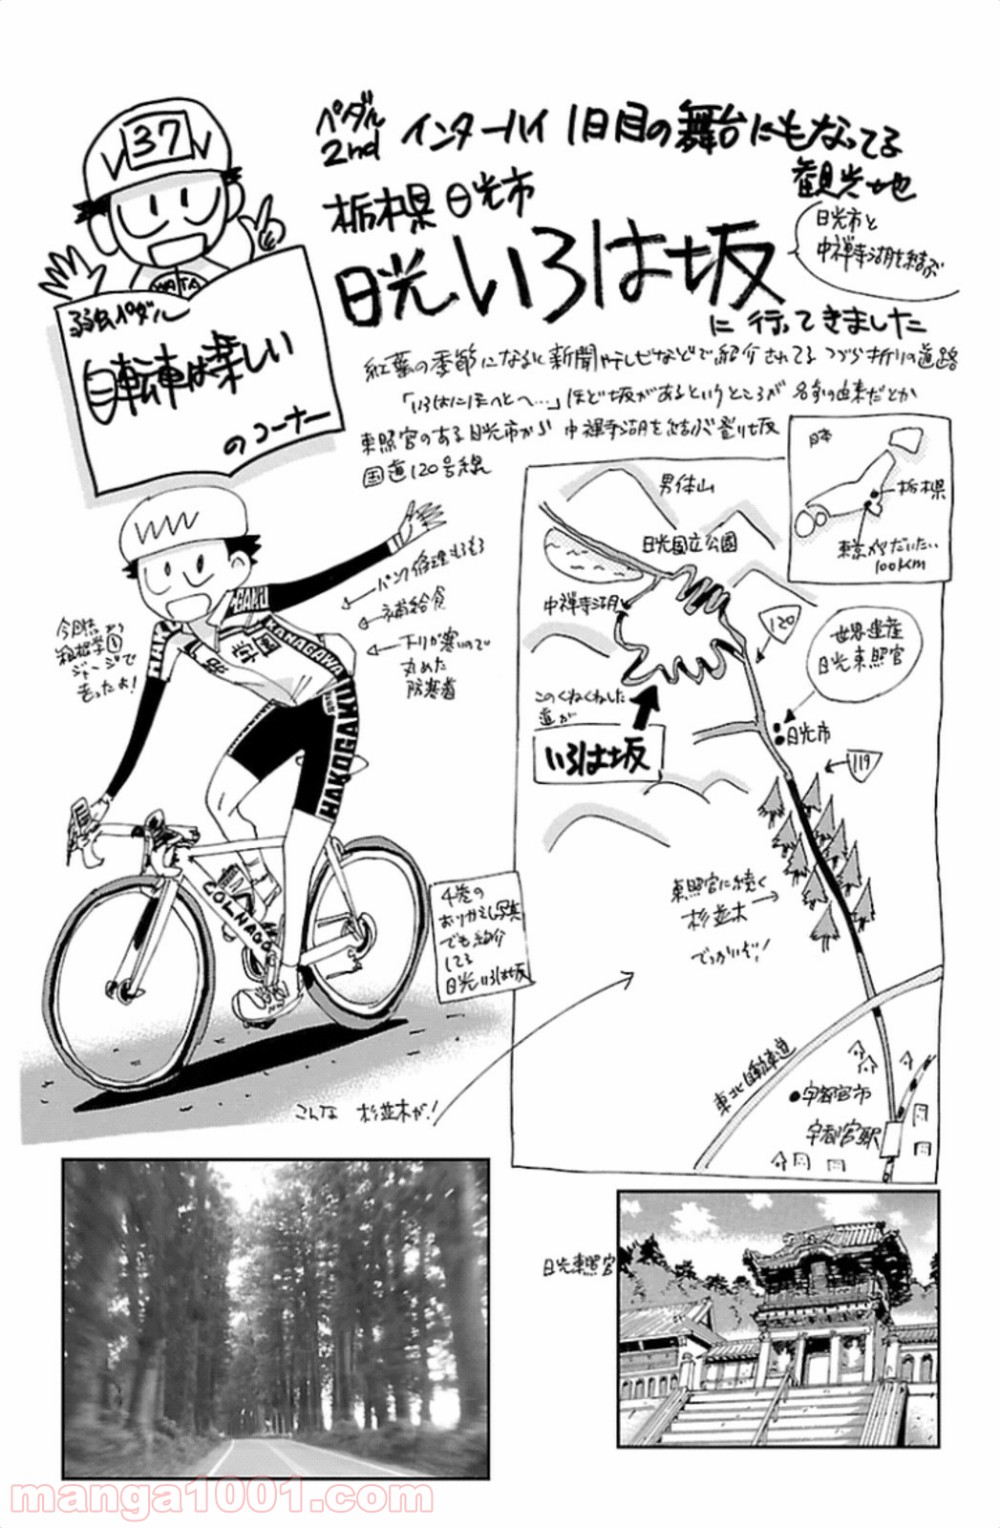 37
WATA
弱虫ペダル
自転車は楽しい
のコーナー
ペダル
2nd
インターハイ1日目の舞台にもなってる
観光地
栃木県日光市
日光いろは坂
日光市と
中禅寺湖を結ぶ
に行ってきました
紅葉の季節になると新聞やテレビなどで紹介されてるつづら折りの道路
「いろはにほへとへ…」ほど坂があるというところが名前の由来だとか
東照宮のある日光市から中禅寺湖を結ぶ登り坂
国道120号線
パンク修理もろもろ
補給食
下りが寒いので
丸めた
防寒着
今回は
箱根学園
ジャージで
走ったよ!
HAKO
GAKU
KANAGAWA
HAKOGAKU
COLNAGO
4巻の
おりかえし写真
でも紹介
してる
日光いろは坂
日本
栃木県
東京からだいたい
100km
男体山
日光国立公園
中禅寺湖
120
世界遺産
日光東照宮
このくねくねした
道が
いろは坂
日光市
119
東照宮に続く
杉並木
でっかいぞ!
東北自動車道
宇都宮市
宇都宮駅
こんな 杉並木が!
日光東照宮
manga1001.com